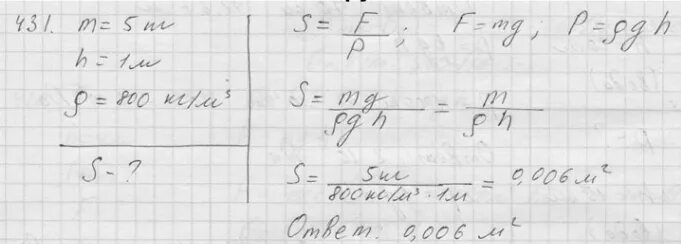 431. m = 5 кг
h = 1 м
ρ = 800 кг/м³
S - ?
S = F/P ; F = mg ; P = ρgh
S = mg/ρgh = m/ρh
S = 5кг/800 кг/м³ · 1м = 0,006 м²
Ответ: 0,006 м²